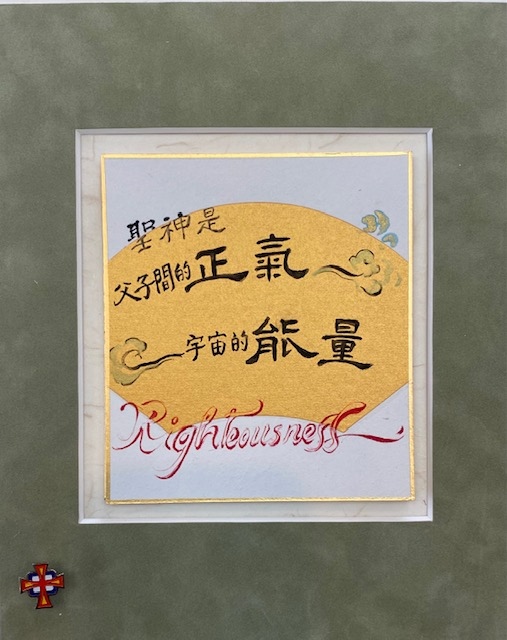 聖神是
父子間的正氣
宇宙的能量
Righteousness